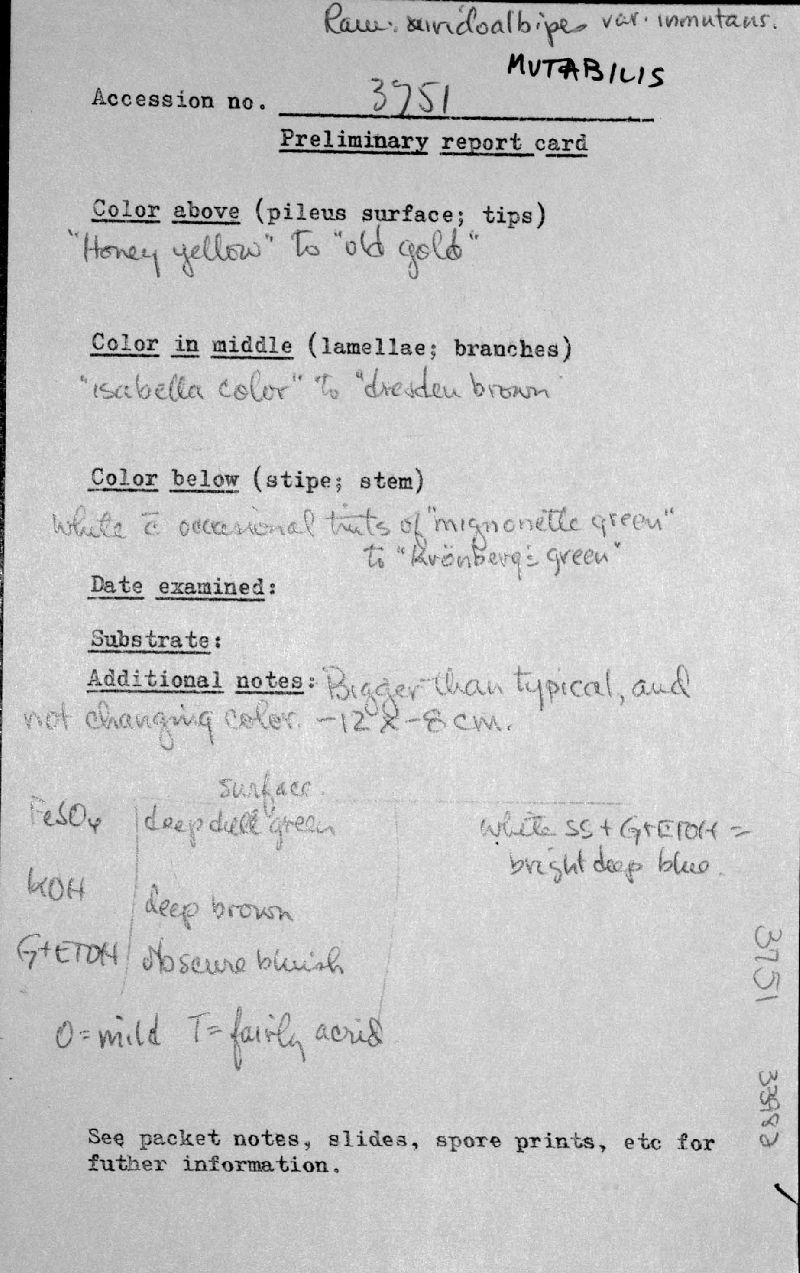 Ram. viridoalbipes var. inmutans.
MUTABILIS
Accession no. 3751
Preliminary report card
Color above (pileus surface; tips)
"Honey yellow" to "old gold"
Color in middle (lamellae; branches)
"isabella color" to "dresden brown
Color below (stipe; stem)
White c̄ occasional tints of "mignonette green"
to "Krönberg's green"
Date examined:
Substrate:
Additional notes: Bigger than typical, and
not changing color. -12 x -8 cm.
surface.
FeSO4 deep dull green
White SS + G+ETOH =
bright deep blue.
KOH deep brown
G+ETOH Obscure bluish
O = mild T = fairly acrid
3751
See packet notes, slides, spore prints, etc for
futher information.